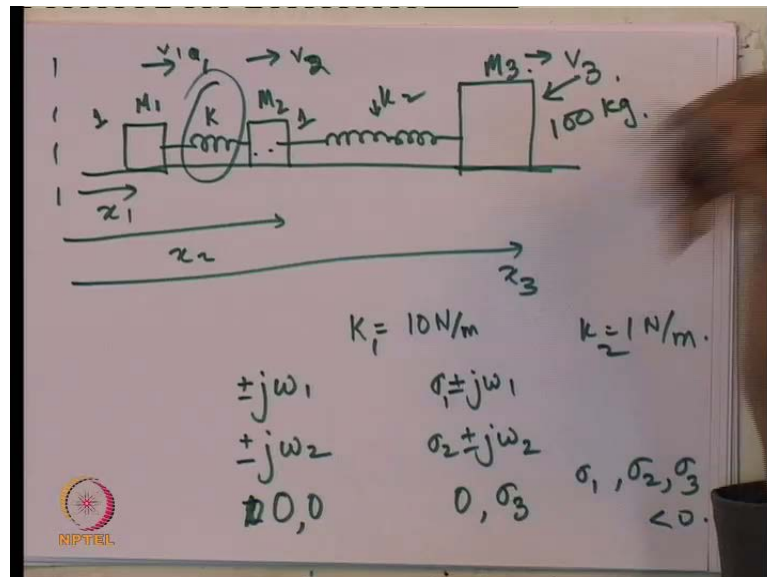 v1 → v2
M3 → v3
M1 K M2 K2 100 kg.
1 1
x1
x2
x3
K1 = 10 N/m K2 = 1 N/m.
±jω1 σ1±jω1
±jω2 σ2±jω2
σ1, σ2, σ3
0,0 0, σ3 < 0.
NPTEL